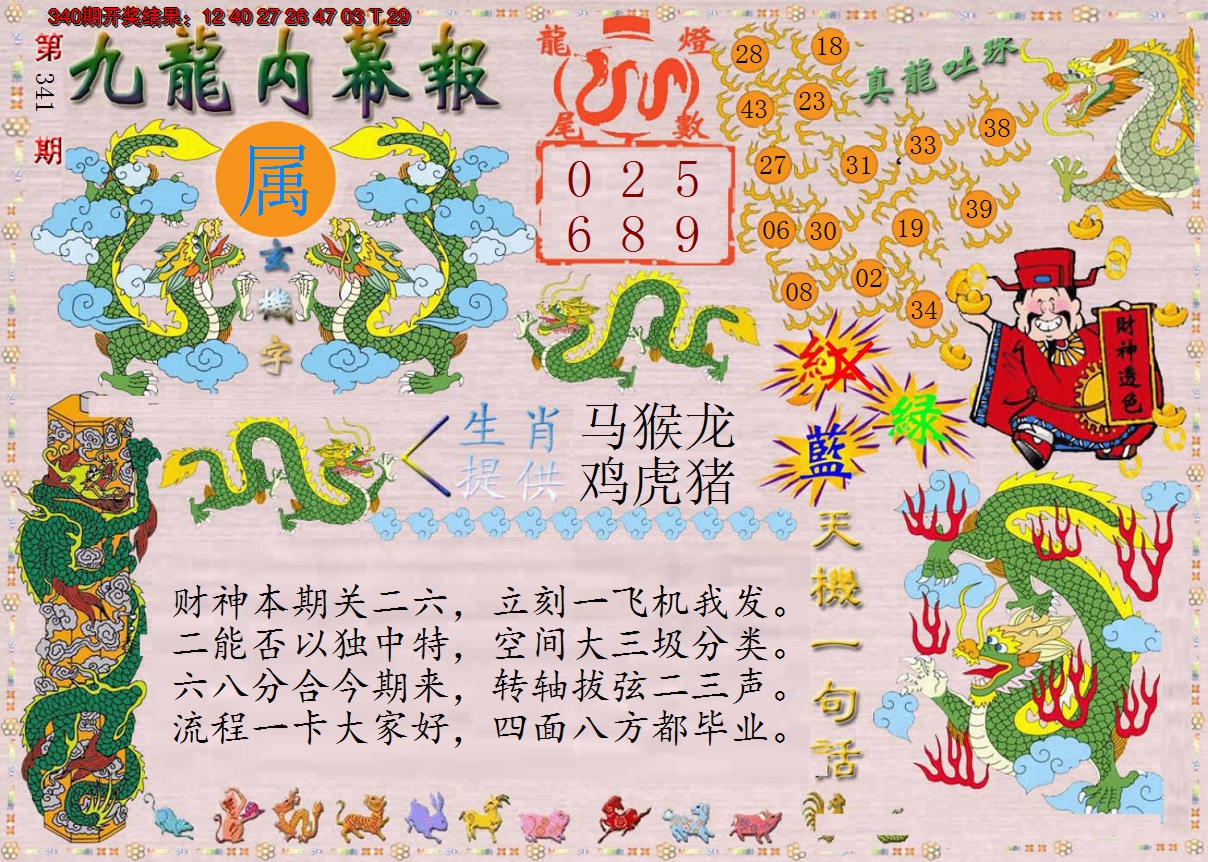 340期开奖结果：12 40 27 26 47 03 T 29
第341期
九龍内幕報
属
玄機字
龍燈尾數
0 2 5
6 8 9
真龍吐珠
28 18
43 23
27 31 33 38
06 30 19 39
08 02 34
財神透色
紅
綠
藍
生肖 马猴龙
提供 鸡虎猪
天機一句話
财神本期关二六，立刻一飞机我发。
二能否以独中特，空间大三圾分类。
六八分合今期来，转轴拔弦二三声。
流程一卡大家好，四面八方都毕业。